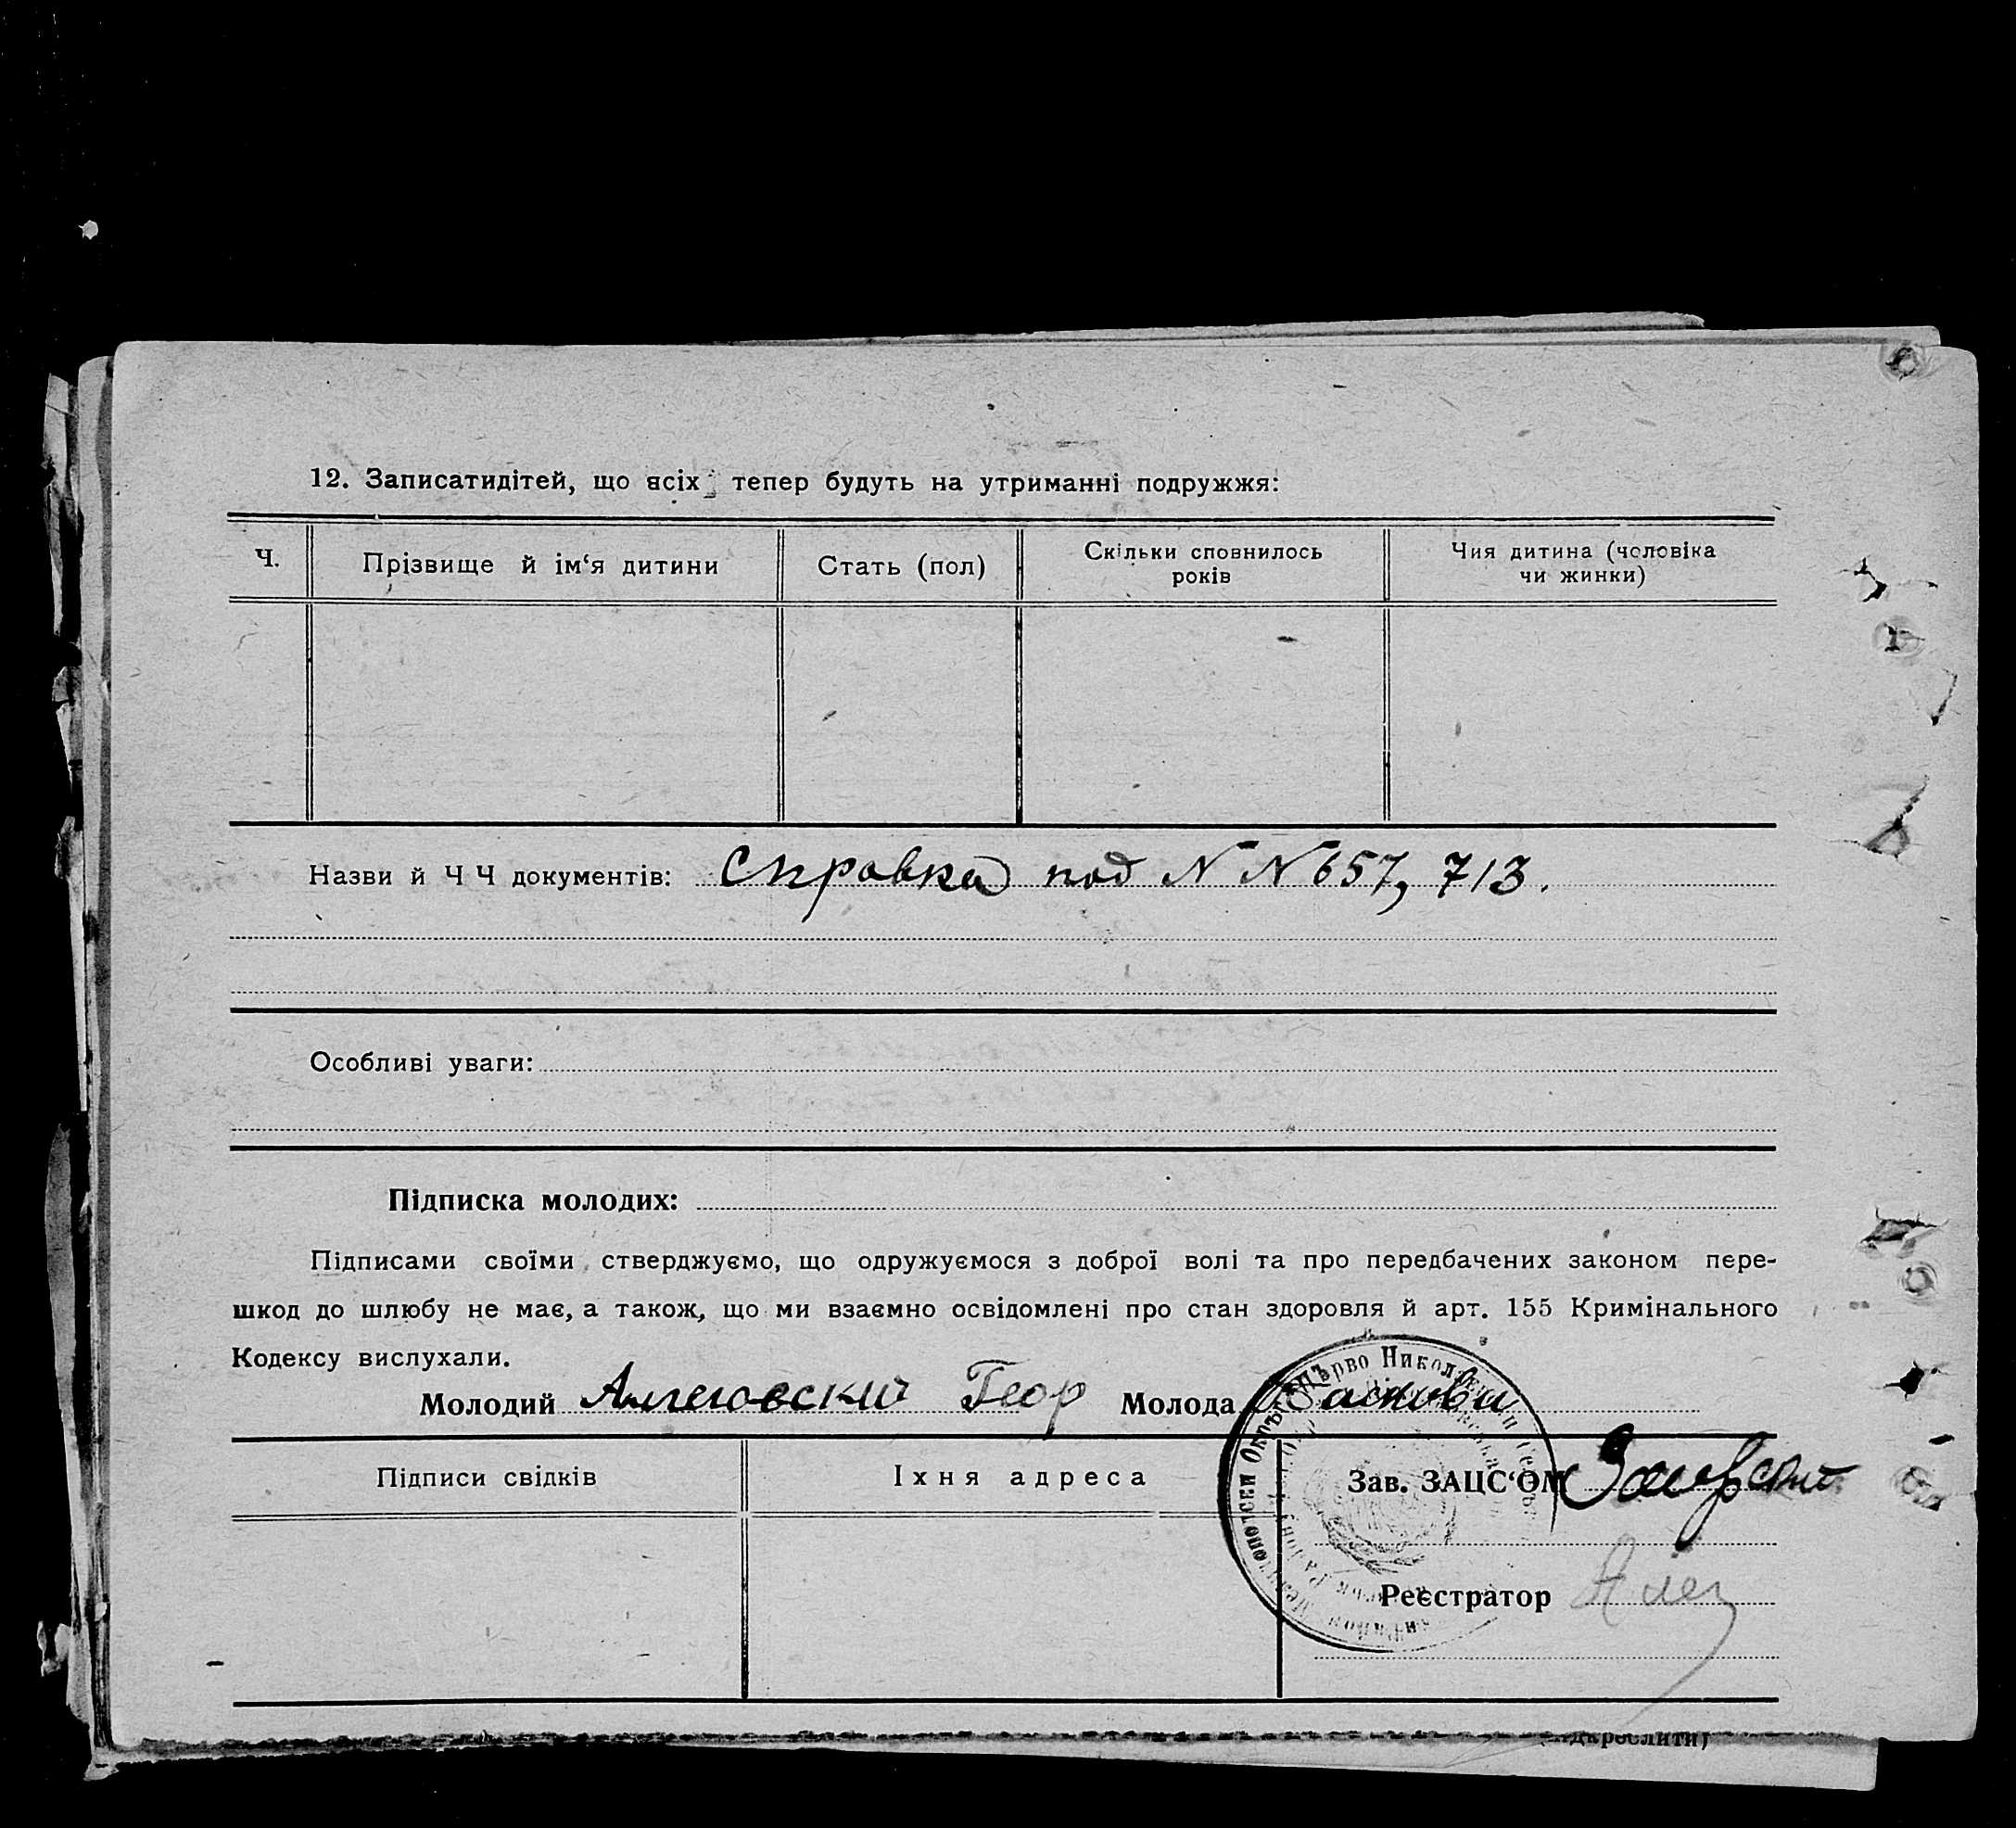 12. Записатидітей, що всіх тепер будуть на утриманні подружжя:
Ч.
Прізвище й ім‘я дитини
Стать (пол)
Скільки сповнилось
років
Чия дитина (чоловіка
чи жинки)
Назви й Ч Ч документів: Справка под N N 657, 713.
Особливі уваги:
Підписка молодих:
Підписами своїми стверджуємо, що одружуємося з доброї волі та про передбачених законом пере-
шкод до шлюбу не має, а також, що ми взаємно освідомлені про стан здоровля й арт. 155 Кримінального
Кодексу вислухали.
Молодий Геор Молода
Підписи свідків
Їхня адреса
Зав. ЗАЦС‘ОМ
Реєстратор